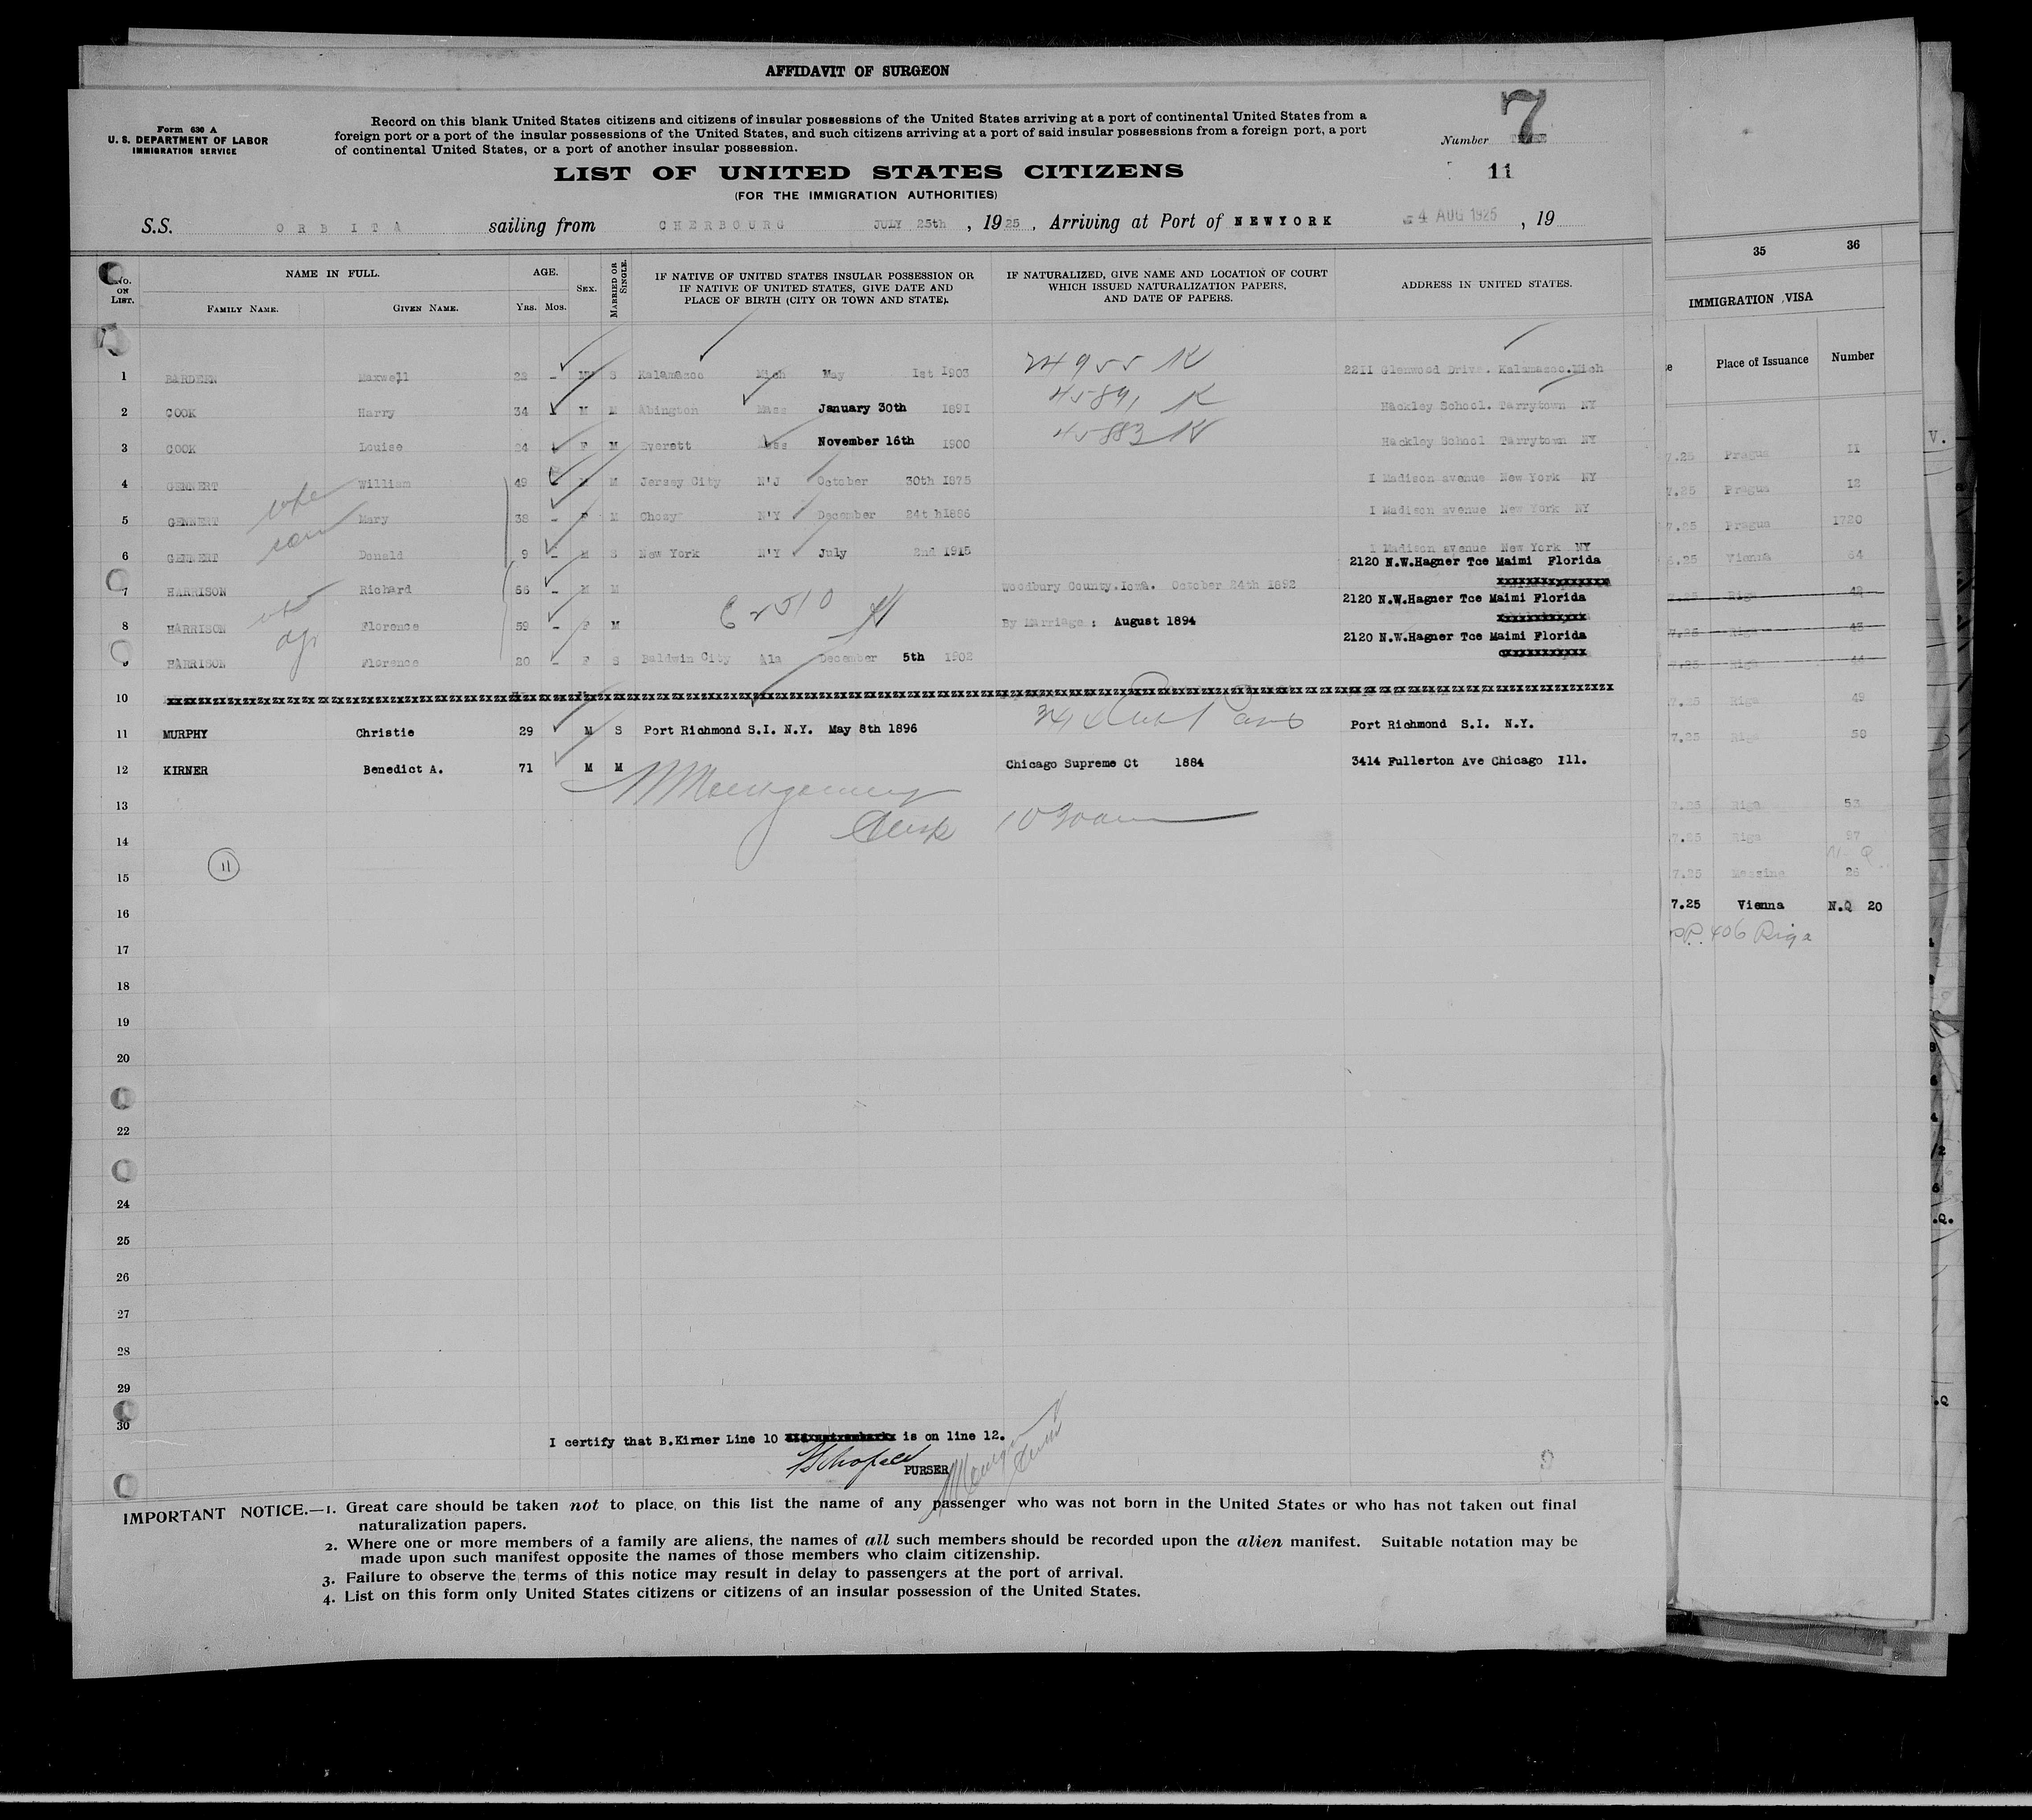 AFFIDAVIT OF SURGEON
Form 630 A
U. S. DEPARTMENT OF LABOR
IMMIGRATION SERVICE
Record on this blank United States citizens and citizens of insular possessions of the United States arriving at a port of continental United States from a
foreign port or a port of the insular possessions of the United States, and such citizens arriving at a port of said insular possessions from a foreign port, a port
of continental United States, or a port of another insular possession.
Number 7
11
LIST OF UNITED STATES CITIZENS
(FOR THE IMMIGRATION AUTHORITIES)
S.S. ORBITA sailing from CHERBOURG JULY 25th, 1925, Arriving at Port of NEWYORK 4 AUG 1925, 19
No. ON LIST. NAME IN FULL. AGE. SEX. MARRIED OR SINGLE. IF NATIVE OF UNITED STATES INSULAR POSSESSION OR IF NATIVE OF UNITED STATES, GIVE DATE AND PLACE OF BIRTH (CITY OR TOWN AND STATE). IF NATURALIZED, GIVE NAME AND LOCATION OF COURT WHICH ISSUED NATURALIZATION PAPERS, AND DATE OF PAPERS. ADDRESS IN UNITED STATES.
FAMILY NAME. GIVEN NAME. YRS. MOS.
1 BARDEEN Maxwell 22 - M S Kalamazoo Mich May 1st 1903 24955 K 2211 Glenwood Drive. Kalamazoo.Mich
2 COOK Harry 34 M M Abington Mass January 30th 1891 45891 K Hackley School. Tarrytown NY
3 COOK Louise 24 F M Everett Mass November 16th 1900 45883 K Hackley School Tarrytown NY
4 GENNERT William 49 M M Jersey City N'J October 30th 1875 1 Madison avenue New York NY
5 GENNERT wife Mary 38 - F M Chosy N'Y December 24th 1886 1 Madison avenue New York NY
6 GENNERT son Donald 9 - M S New York N'Y July 2nd 1915 1 Madison avenue New York NY
2120 N.W.Hagner Tce Maimi Florida
7 HARRISON Richard 56 - M M Woodbury County.Iowa. October 24th 1892
2120 N.W.Hagner Tce Maimi Florida
8 HARRISON Florence 59 - F M By Marriage: August 1894
2120 N.W.Hagner Tce Maimi Florida
9 HARRISON Florence 20 - F S Baldwin City Ala December 5th 1902
10
11 MURPHY Christie 29 M S Port Richmond S.I. N.Y. May 8th 1896 Port Richmond S.I. N.Y.
12 KIRNER Benedict A. 71 M M Chicago Supreme Ct 1884 3414 Fullerton Ave Chicago Ill.
13
Montgomery
Clerk 1030am
14
11
15
16
17
18
19
20
22
24
25
26
27
28
29
30
I certify that B.Kirner Line 10 is on line 12.
PURSER
9
IMPORTANT NOTICE.—1. Great care should be taken not to place on this list the name of any passenger who was not born in the United States or who has not taken out final
naturalization papers.
2. Where one or more members of a family are aliens, the names of all such members should be recorded upon the alien manifest. Suitable notation may be
made upon such manifest opposite the names of those members who claim citizenship.
3. Failure to observe the terms of this notice may result in delay to passengers at the port of arrival.
4. List on this form only United States citizens or citizens of an insular possession of the United States.
35 36
IMMIGRATION VISA
Place of Issuance Number
7.25 Prague 11
7.25 Prague 12
7.25 Prague 1720
6.25 Vienna 64
7.25 Riga
7.25 Riga
7.25 Riga
7.25 Riga 49
7.25 Riga 50
7.25 Riga 53
7.25 Riga
7.25 Messina 26
7.25 Vienna N.Q 20
406 Riga
V.